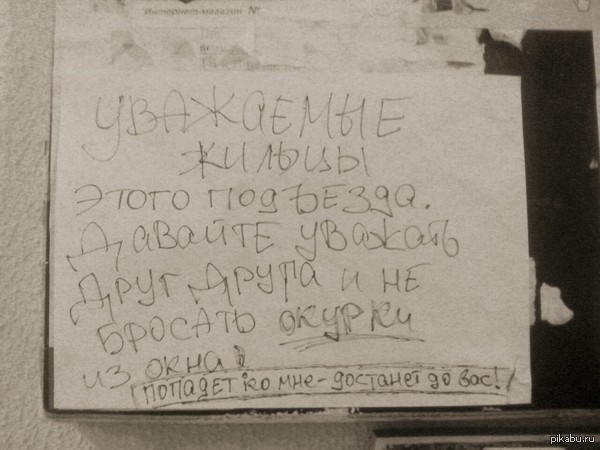 Интернет-магазин №
УВАЖАЕМЫЕ
ЖИЛЬЦЫ
ЭТОГО ПОДЪЕЗДА.
ДАВАЙТЕ УВАЖАТЬ
ДРУГ ДРУГА И НЕ
БРОСАТЬ ОКУРКИ
ИЗ ОКНА
ПОПАДЕТ КО МНЕ-ДОСТАНЕТ ДО ВАС!
pikabu.ru